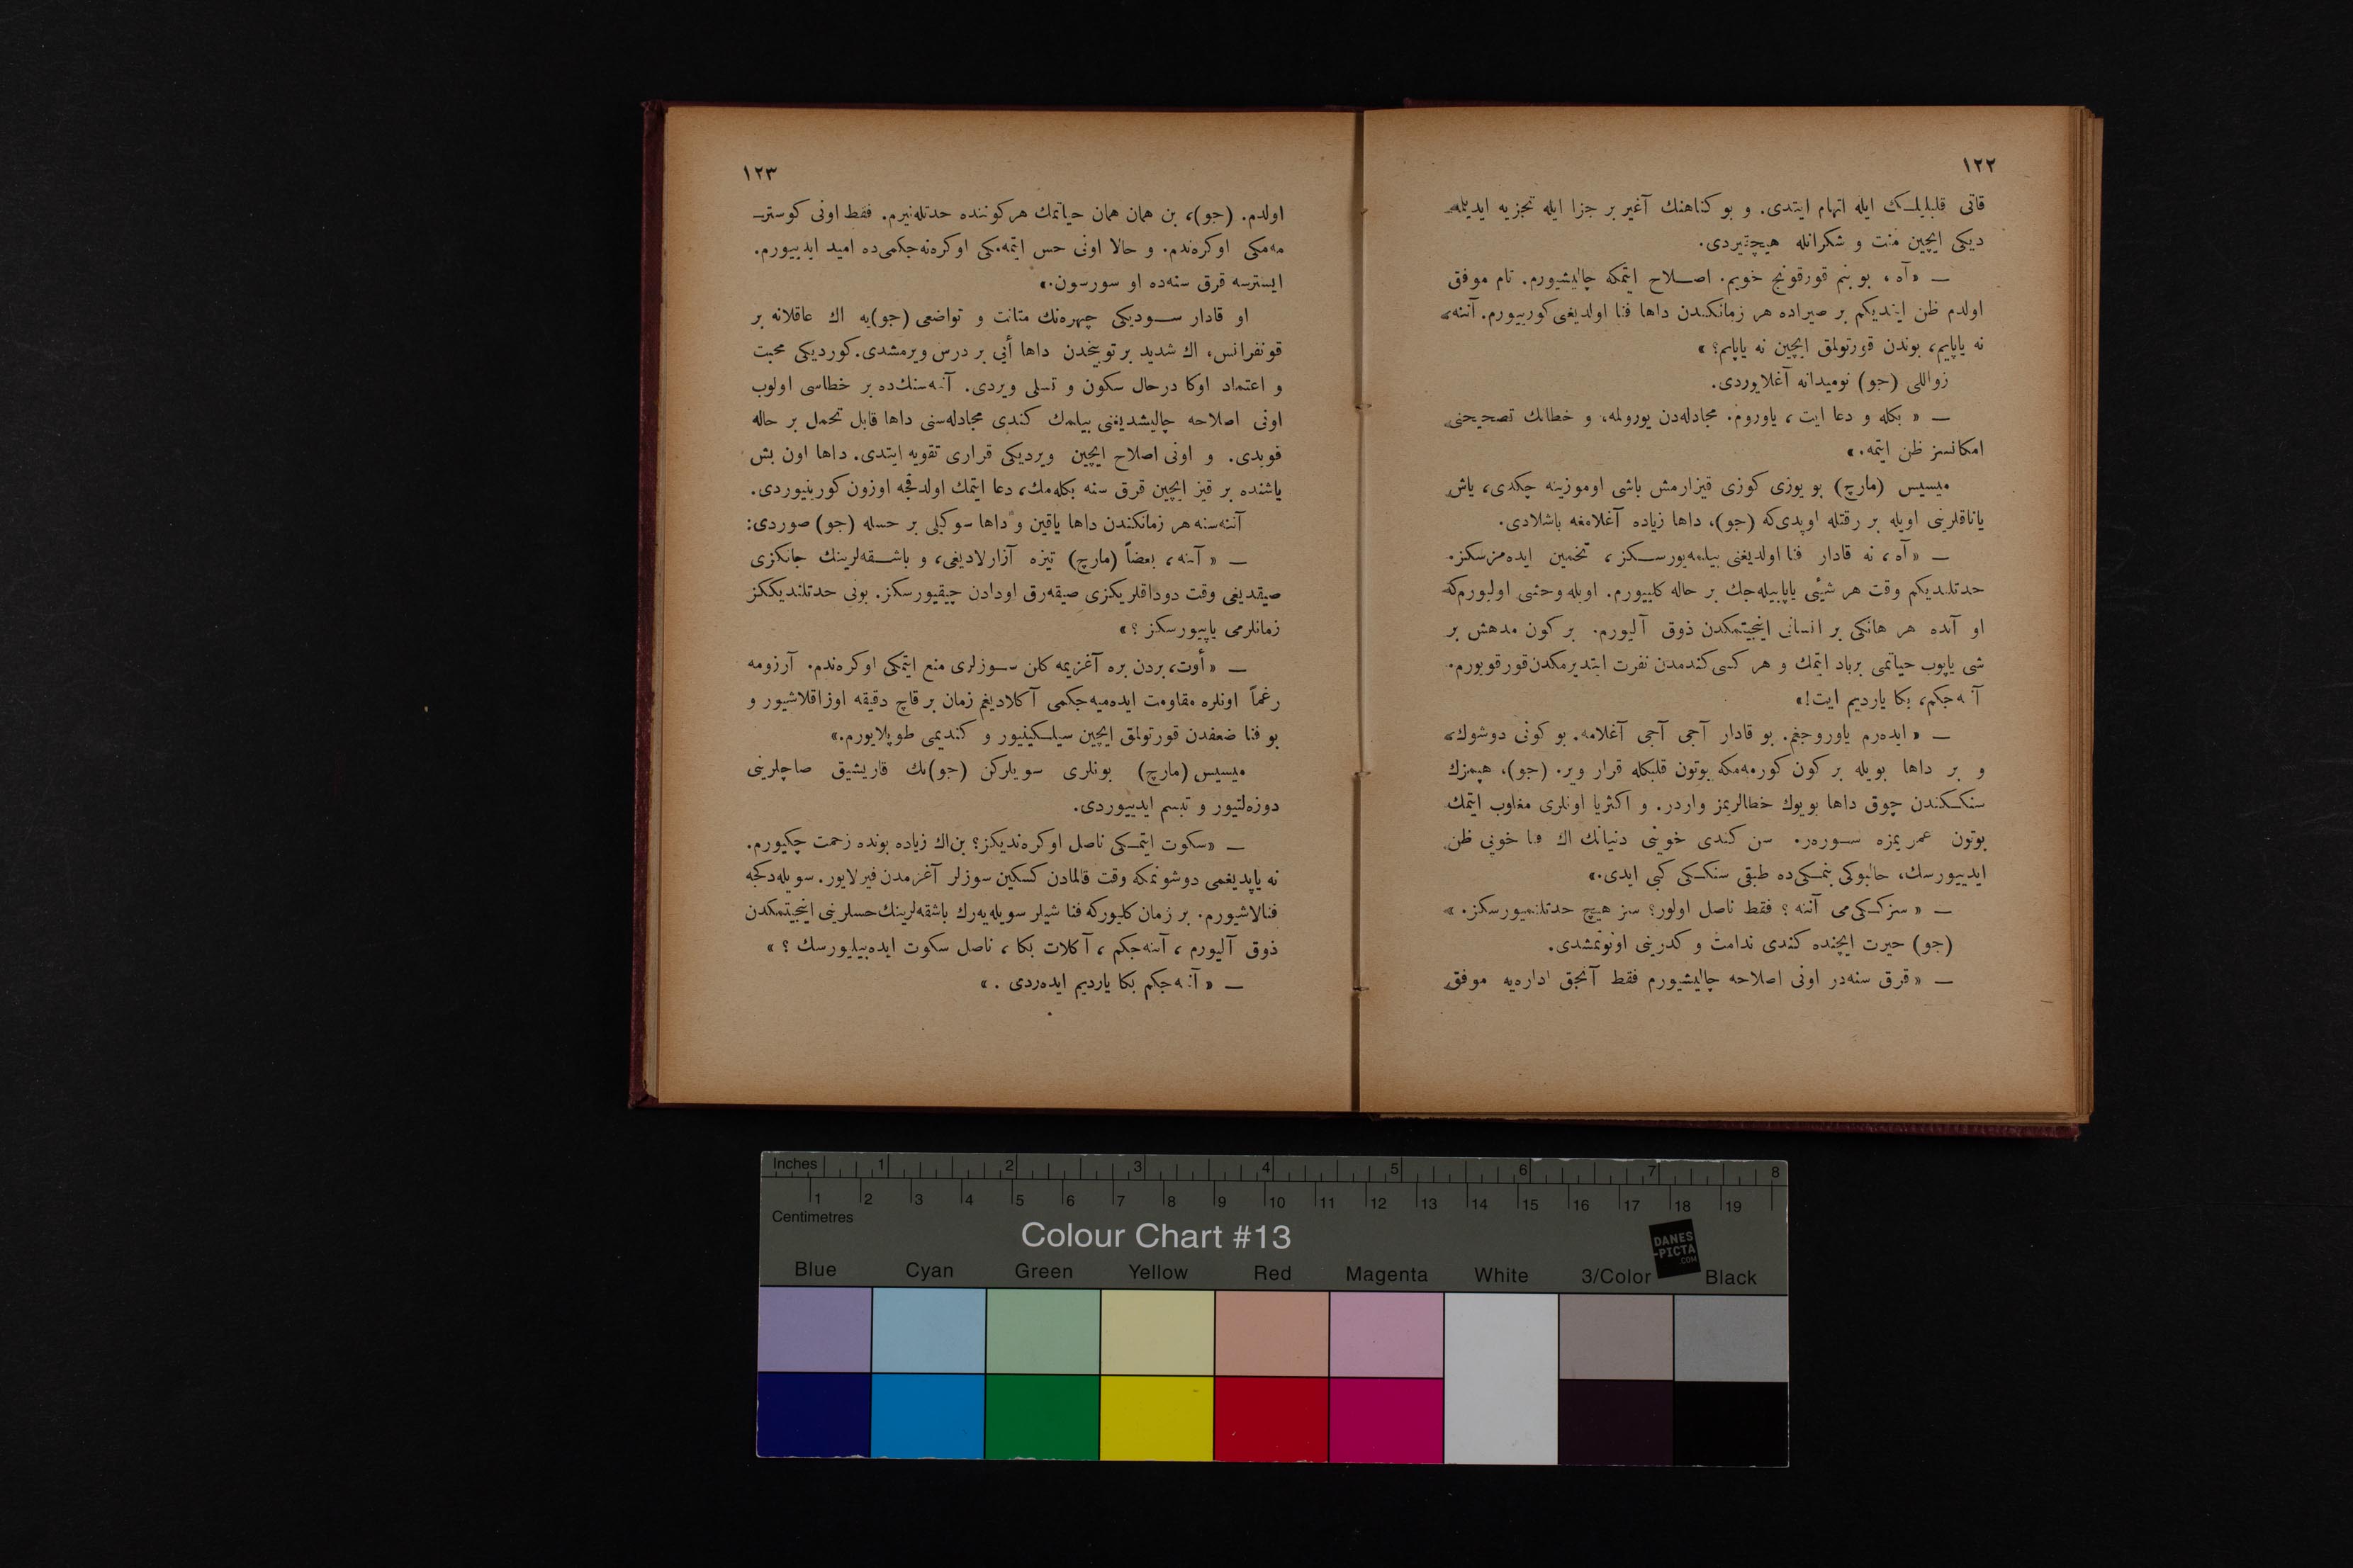 ١٢٢
قاتی قلبلیلـك ایله اتهام ایتدی. و بو كناهنك آغیر بر جزا ایله تجزیه ایدیلمه‌
دیكی ایچین منت و شكرانله هیچقیردی.
— «آه ، بو بنم قورقونج خویم. اصـلاح ایتمكه چالیشیورم. تام موفق
اولدم ظن ایتدیكم بر صیراده هر زمانكندن داها فنا اولدیغی كورییورم. آننه،
نه یاپایم، بوندن قورتولمق ایچین نه یاپایم؟ »
زواللی (جو) نومیدانه آغلایوردی.
— « بكله و دعا ایت ، یاوروم. مجادله‌دن یورولمه، و خطانك تصحیحنی
امكانسز ظن ایتمه. »
میسیس (مارچ) بو یوزی كوزی قیزارمش باشی اوموزینه چكدی، یاش
یاناقلرینی اویله بر رقتله اوپدی‌كه (جو)، داها زیاده آغلامغه باشلادی.
— «آه ، نه قادار فنا اولدیغنی بیلمه‌یورسـكز ، تخمین ایده‌مزسكز.
حدتلندیكم وقت هر شیئی یاپابیله‌جك بر حاله كلییورم. اویله وحشی اولیورم‌كه
او آنده هر هانكی بر انسانی اینجیتمكدن ذوق آلیورم. بر كون مدهش بر
شی یاپوب حیاتمی برباد ایتمك و هر كسی كندمدن نفرت ایتدیرمكدن قورقویورم.
آننه‌جكم، بكا یاردیم ایت!»
— « ایده‌رم یاوروجغم. بو قادار آجی آجی آغلامه. بو كونی دوشوك،
و بر داها بویله بر كون كورمه‌مكه بوتون قلبكله قرار ویر. (جو)، هپمزك
سنكـكندن چوق داها بویوك خطالریمز واردر. و اكثریا اونلری مغلوب ایتمك
بوتون عمریمزه سـوره‌ر. سن كندی خوینی دنیانك اك فنا خویی ظن
ایدییورسك، حالبوكی بنمـكی‌ده طبقی سنكـكی كبی ایدی.»
— « سزكـكی‌می آننه ؟ فقط ناصل اولور؟ سز هیچ حدتلنمیورسكز. »
(جو) حیرت ایچنده كندی ندامت و كدرینی اونوتمشدی.
— « قرق سنه‌در اونی اصلاحه چالیشیورم فقط آنجق اداره‌یه موفق
١٢٣
اولدم. (جو)، بن همان همان حیاتمك هركوننده حدتله‌نیرم. فقط اونی كوستر-
مه‌مكی اوكره‌ندم. و حالا اونی حس ایتمه‌مكی اوكره‌نه‌جكمی‌ده امید ایدییورم.
ایسترسه قرق سنه‌ده او سورسون.»
او قادار سـودیكی چهره‌نك متانت و تواضعی (جو)یه اك عاقلانه بر
قونفرانس، اك شدید بر توبیخدن داها أیی بر درس ویرمشدی. كوردیكی محبت
و اعتماد اوكا درحال سكون و تسلی ویردی. آننه‌سنك‌ده بر خطاسی اولوب
اونی اصلاحه چالیشدیغنی بیلمك كندی مجادله‌سنی داها قابل تحمل بر حاله
قویدی. و اونی اصلاح ایچین ویردیكی قراری تقویه ایتدی. داها اون بش
یاشنده بر قیز ایچین قرق سنه بكله‌مك، دعا ایتمك اولدقجه اوزون كورینیوردی.
آننه‌سنه هر زمانكندن داها یاقین و داها سوكیلی بر حسله (جو) صوردی:
— « آننه ، بعضاً (مارچ) تیزه آزارلادیغی، و باشـقه‌لرینك جانكزی
صیقدیغی وقت دوداقلریكزی صیقه‌رق اودادن چیقیورسكز. بونی حدتلندیككز
زمانلرمی یاپییورسكز ؟ »
— « أوت، بردن بره آغزیمه كلن سـوزلری منع ایتمكی اوكره‌ندم. آرزومه
رغماً اونلره مقاومت ایده‌میه‌جكمی آكلادیغم زمان بر قاچ دقیقه اوزاقلاشیور و
بو فنا ضعفدن قورتولمق ایچین سیلـكینیور و كندیمی طوپلایورم.»
میسیس (مارچ) بونلری سویلركن (جو)نك قاریشیق صاچلرینی
دوزه‌لتیور و تبسم ایدییوردی.
— «سكوت ایتمـكی ناصل اوكره‌ندیكز؟ بن اك زیاده بونده زحمت چكیورم.
نه یاپدیغمی دوشونمكه وقت قالمادن كسكین سوزلر آغزمدن فیرلایور. سویله‌دكجه
فنالاشیورم. بر زمان كلیوركه فنا شیلر سویله‌یه‌رك باشقه‌لرینك حسلرینی اینجیتمكدن
ذوق آلیورم ، آننه‌جكم ، آكلات بكا ، ناصل سكوت ایده‌بیلیورسك ؟ »
— « آننه‌جكم بكا یاردیم ایده‌ردی . »
Inches 1 2 3 4 5 6 7 8
1 2 3 4 5 6 7 8 9 10 11 12 13 14 15 16 17 18 19
Centimetres
Colour Chart #13
DANES
-PICTA
.COM
Blue Cyan Green Yellow Red Magenta White 3/Color Black